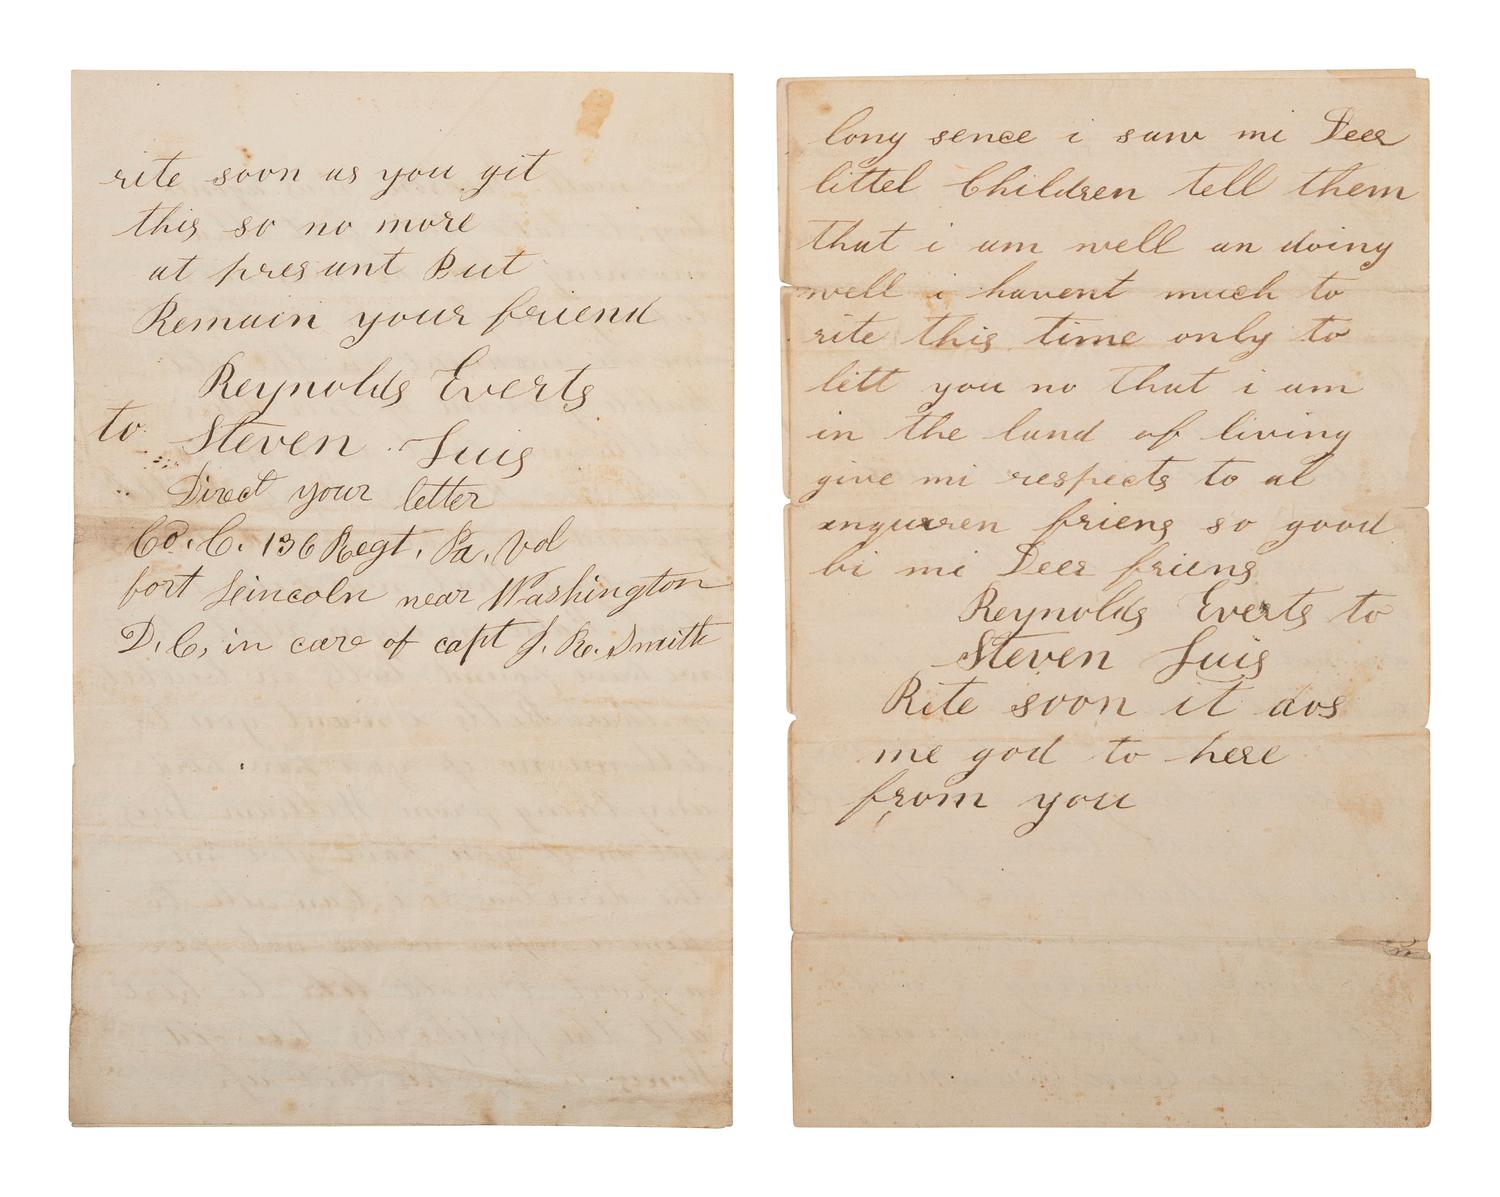 rite soon as you git
this so no more
at presant But
Remain your friend
Reynolds Everts
to Steven Luis
Direct your letter
Co. C. 136 Regt. Pa. Vol
fort Leincoln near Washington
D. C, in care of capt J. R. Smith
long sence i saw mi Deer
littel Children tell them
that i am well an doing
well i havent much to
rite this time only to
lett you no that i am
in the land of living
give mi respects to al
inquiren friens so good
bi mi Deer friens
Reynolds Everts to
Steven Luis
Rite soon it dos
me god to here
from you